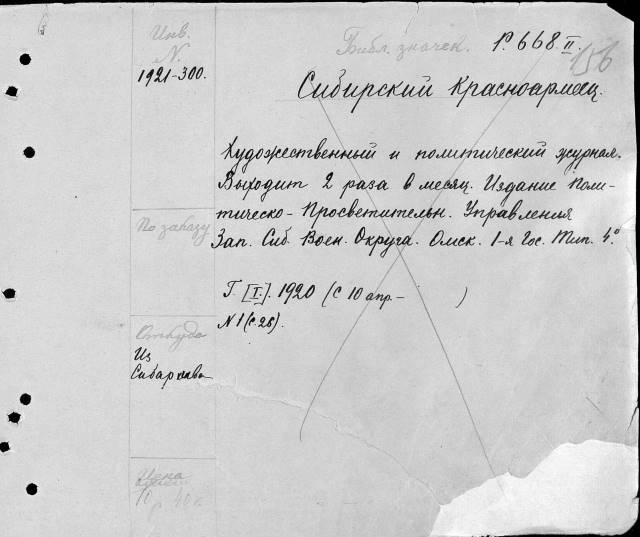 Инв.
N.
1921-300.
Библ. значек. P. 668 II.
156
Сибирский Красноармеец.
Художественный и политический журнал.
Выходит 2 раза в месяц. Издание Поли-
тическо-Просветительн. Управления
Зап. Сиб. Воен. Округа. Омск. 1-я Гос. Тип. 4°.
По заказу
Г. [I]. 1920 (с 10 апр- )
N 1 (с. 26).
Откуда
Из
Цена
10 р. 40 к.